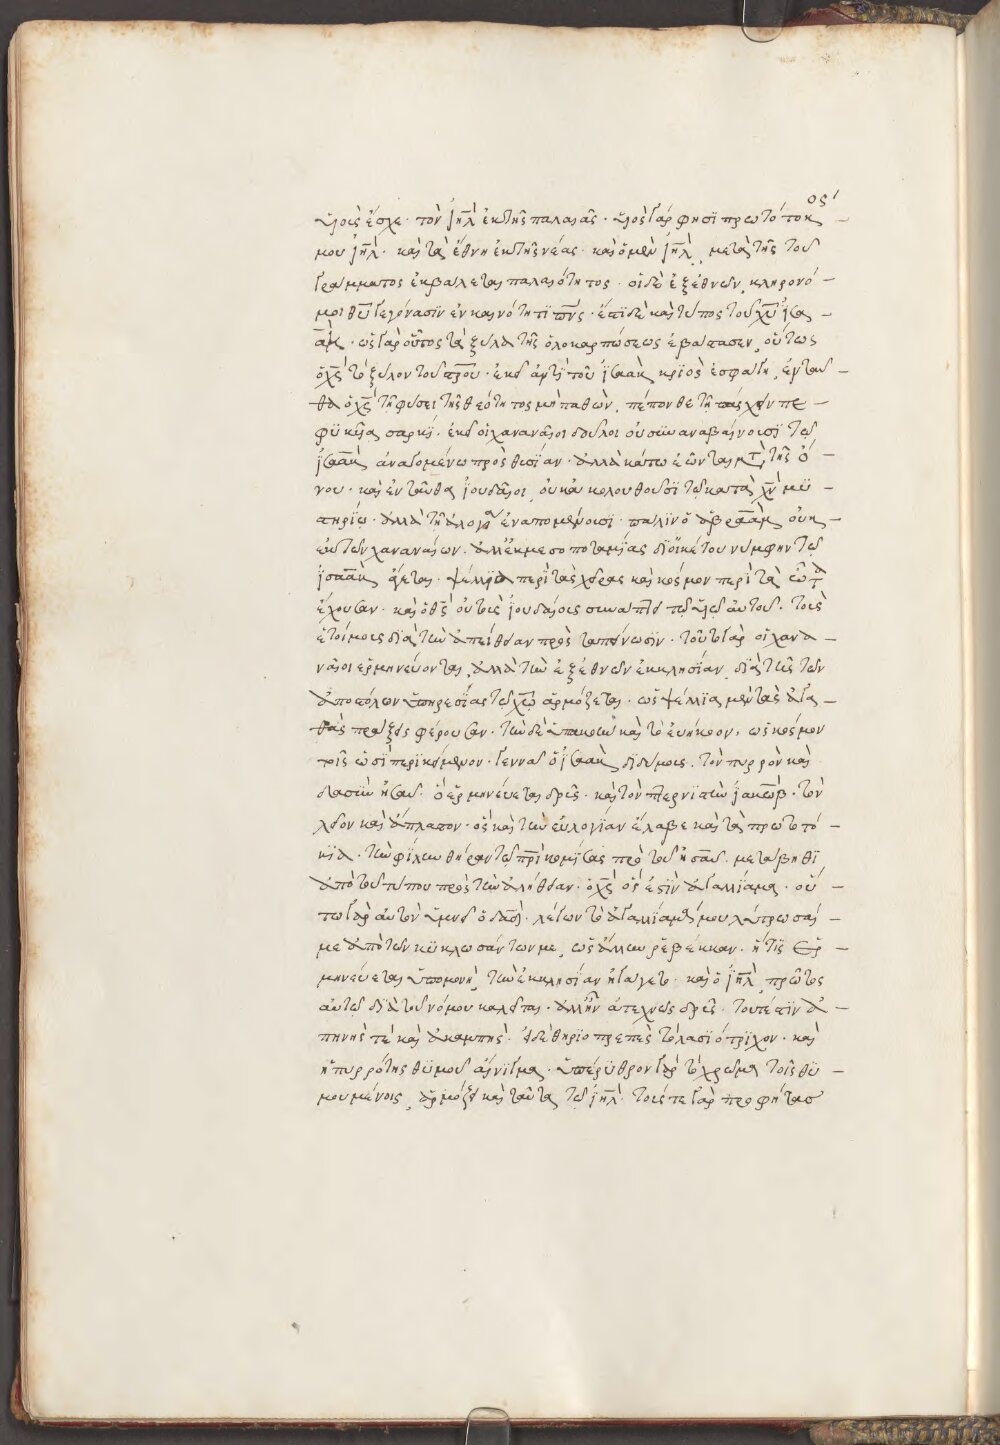 ος´
υἱοὺς ἔσχε· τὸν ἰη̅λ ἐκ τῆς παλαιᾶς· υἱὸς γάρ φησι πρωτότοκ
μου ἰη̅λ· καὶ τὰ ἔθνη ἐκ τῆς νέας· καὶ ὁ μὲν ἰη̅λ, μετὰ τῆς τοῦ
γράμματος ἐκβάλεται παλαιότητος· οἱ δὲ ἐξ ἐθνῶν, κληρονό
μοι θυ̅ γεγόνασϊν ἐν καινότητι πν̅ς· ἔτι δὲ καὶ τύπος τοῦ χυ̅ ἰσα
ὰκ· ὡς γὰρ οὗτος τὰ ξύλα τῆς ὁλοκαρπώσεως ἐβάστασεν, οὕτως
ὁ χς̅ τὸ ξύλον τοῦ στρου̅· ἐκεῖ ἀντὶ τοῦ ἰσαὰκ κριὸς ἐσφάγη, ἐνταῦ
θα ὁ χς̅ τῆ φύσει τῆς θεότητος μὴ παθὼν, πέπονθε τῆ πάσχειν πε
φυκυῖα σαρκί· ἐκεῖ οἱ χαναναῖοι δοῦλοι οὐ συναναβαίνουσϊ τῶ
ἰσαὰκ ἀναγομένω πρὸς θυσίαν· ἀλλὰ κάτω ἐῶνται μετὰ τῆς ὄ
νου· καὶ ἐνταῦθα ἰουδαῖοι, οὐκ ἀκολουθοῦσϊ τῶ κατὰ χν̅ μυ
στηρίω· ἀλλὰ τῆ ἀλογία ἐναπομένουσϊ· πάλϊν ὁ ἀβραὰμ οὐκ
ἐκ τῶν χαναναίων· ἀλλ' ἐκ μεσοποταμίας δι' οἰκέτου νύμφην τῶ
ἰσαὰκ ἄγεται· ψέλλια περὶ τὰς χεῖρας καὶ κόσμον περὶ τὰ ὦτα
ἔχουσαν· καὶ ὁ θς̅ οὐ τοὺς ἰουδαίους συνάπτει τῶ υἱῶ αὐτοῦ· τοὺς
ἑτοίμους διὰ τὴν ἀπείθειαν πρὸς ταπείνωσϊν· τοῦτο γὰρ οἱ χανα
ναῖοι ἑρμηνεύονται, ἀλλὰ τὴν ἐξ ἐθνῶν ἐκκλησίαν, διὰ τῆς τῶν
ἀποστόλων ὑπηρεσίας τῶ χω̅ ἁρμόζεται· ὡς ψέλλια μὲν τὰς ἀγα
θὰς πράξεις φέρουσαν· τὴν δὲ ὑπακοὴν καὶ τὸ εὐήκοον, ὡς κόσμον
τοῖς ὠσὶ περικείμενον· γεννᾶ ὁ ἰσαὰκ διδύμους· τὸν πυρρὸν καὶ
δασὺν ἠσαῦ· ὃ ἑρμηνεύεται δρῦς· καὶ τὸν πτερνιστὴν ἰακώβ· τὸν
λεῖον καὶ ἄπλαστον· ὃς καὶ τὴν εὐλογίαν ἔλαβε καὶ τὰ πρωτοτό
κια· τὴν φίλην θήραν τῶ πρι̅ κομίσας πρὸ τοῦ ἠσαῦ· μετάβηθι
ἀπὸ τοῦ τύπου πρὸς τὴν ἀλήθειαν· ὁ χς̅ ὅς ἐστϊν ἀγαλλίαμα· οὕ
τω γὰρ αὐτὸν ὑμνεῖ ὁ δαδ̅· λέγων τὸ ἀγαλλίαμά μου λύτρωσαί
με ἀπὸ τῶν κυκλωσάντων με, ὡς ἄλλην ῥεβέκκαν· ἥτις ἑρ
μηνεύεται ὑπομονὴ, τὴν ἐκκλησίαν ἠγάγετο· καὶ ὁ ἰη̅λ, πρῶτος
αὐτῶ διὰ τοῦ νόμου καλεῖται· ἀλλ' ἦν ἀτεχνῶς δρῦς· τουτέστϊν ἀ
πηνής τε καὶ ἀκαμπής· εἶδε θηριοπρεπὲς τὸ λασιότριχον· καὶ
ἡ πυρρότης θυμοῦ αἴνιγμα· ὑπέρυθρον γὰρ τὸ χρῶμα τοῖς θυ
μουμένοις, ἁρμόζει καὶ ταῦτα τῶ ἰη̅λ· τούς τε γὰρ προφήτας